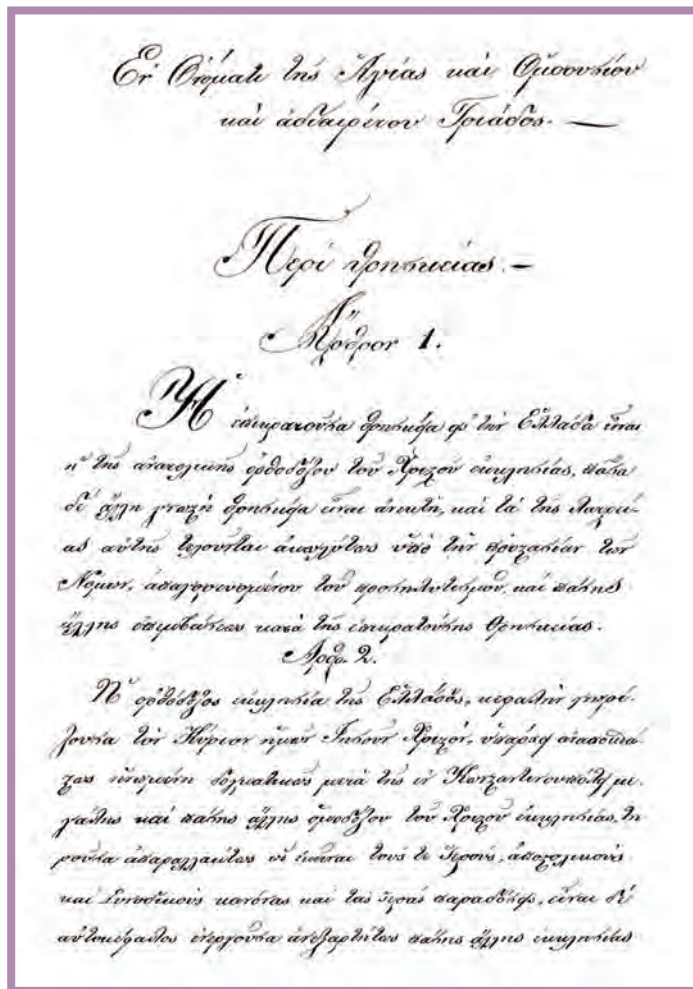 Εν Ονόματι της Αγίας και Ομοουσίου
και αδιαιρέτου Τριάδος. —
Περί θρησκείας. —
Άρθρον 1.
Η επικρατούσα θρησκεία εις την Ελλάδα είναι
η της ανατολικής ορθοδόξου του Χριστού εκκλησίας, πάσα
δε άλλη γνωστή θρησκεία είναι ανεκτή, και τα της λατρεί-
ας αυτής τελούνται ακωλύτως υπό την προστασίαν των
Νόμων, απαγορευομένου του προσηλυτισμού, και πάσης
άλλης επεμβάσεως κατά της επικρατούσης θρησκείας.
Άρθρ. 2.
Η ορθόδοξος εκκλησία της Ελλάδος, κεφαλήν γνωρί-
ζουσα τον Κύριον ημών Ιησούν Χριστόν, υπάρχει αναποσπά-
στως ηνωμένη δογματικώς μετά της εν Κωνσταντινουπόλει με-
γάλης και πάσης άλλης ομοδόξου του Χριστού εκκλησίας, τη
ρούσα απαραλλάκτως ως εκείναι τους τε ιερούς, αποστολικούς
και Συνοδικούς κανόνας και τας ιεράς παραδόσεις, είναι δε
αυτοκέφαλος ενεργούσα ανεξαρτήτως πάσης άλλης εκκλησίας